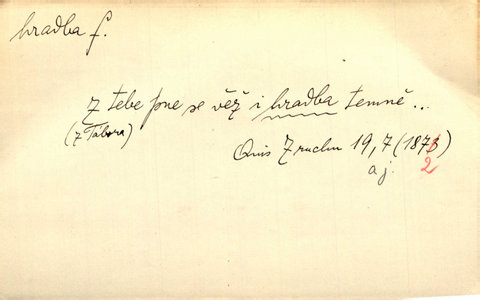 hradba f.
Z tebe pne se věž i hradba temně...
(Z Tábora)
Quis Z ruchu 19, 7 (1873)
aj. 2